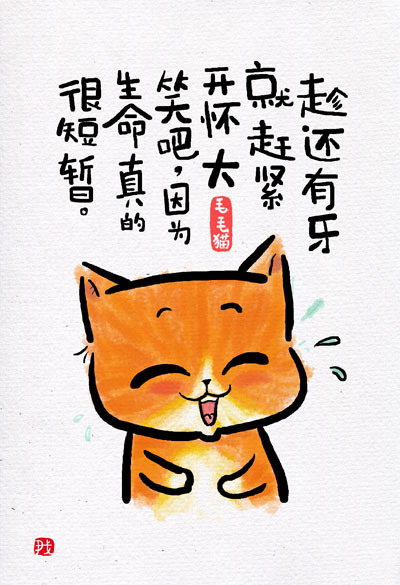 趁还有牙
就赶紧
开怀大
笑吧，因为
生命真的
很短暂。
毛毛猫